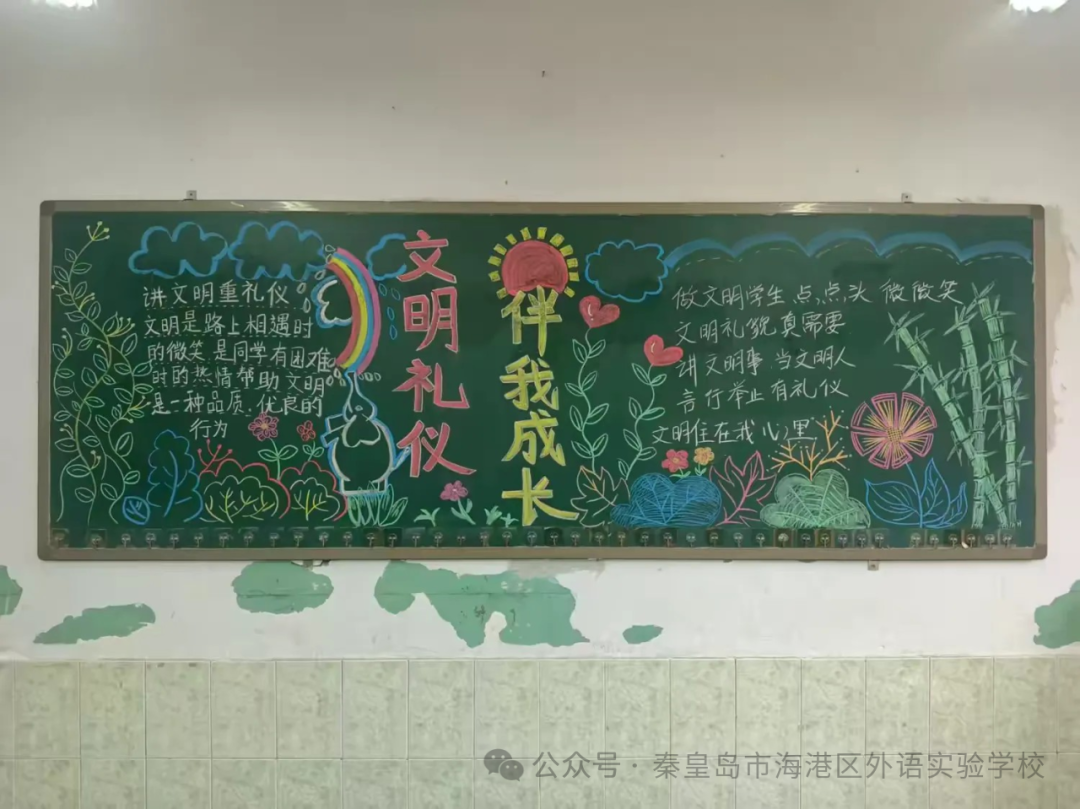 讲文明重礼仪
文明是路上相遇时
的微笑是同学有困难
时的热情帮助文明
是一种品质 优良的
行为
文明礼仪
伴我成长
做文明学生点点头 微微笑
文明礼貌真需要
讲文明事 当文明人
言行举止有礼仪
文明住在我心里
公众号·秦皇岛市海港区外语实验学校